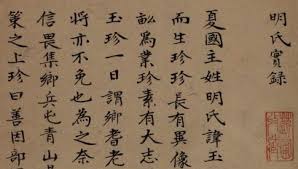 明氏實錄
夏國主姓明氏諱玉
而生珍珍長有異像
畝爲業珍素有大志
玉珍一日謂鄉耆老
將亦不免也爲之奈
信畏集鄉兵屯青山
策之上珍曰善因部